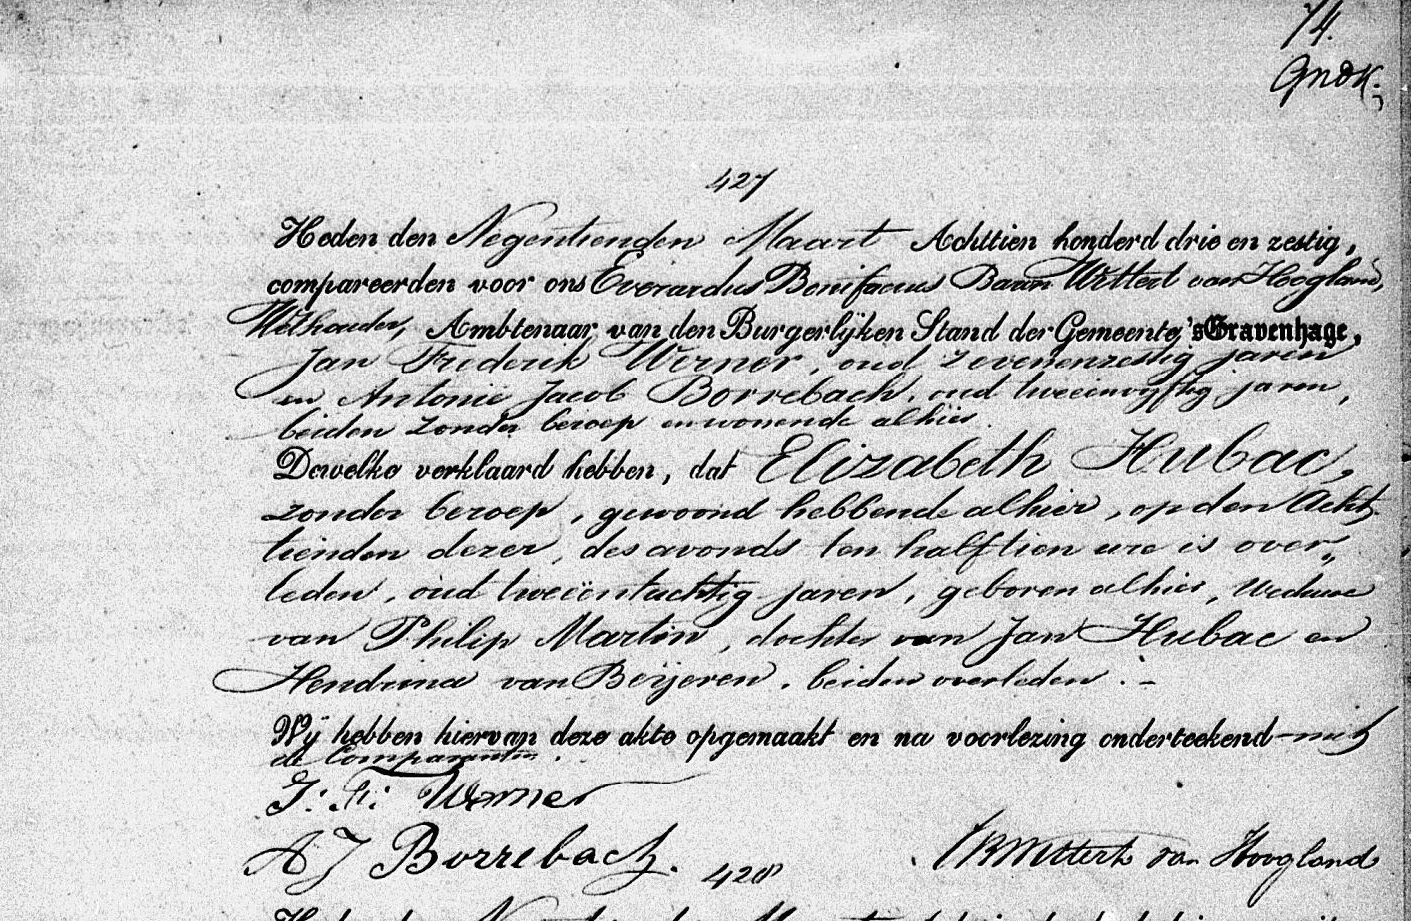 74.
427
Heden den Negentienden Maart Achttien honderd drie en zestig,
compareerden voor ons Everardus Bonifacius Baron Wittert van Hoogland,
Wethouder, Ambtenaar van den Burgerlijken Stand der Gemeente 'sGravenhage,
Jan Frederik Werner, oud zevenenzestig jaren
en Antonie Jacob Borrebach, oud tweeenvijftig jaren,
beiden zonder beroep en wonende alhier.
Dewelke verklaard hebben, dat Elizabeth Hubac,
zonder beroep, gewoond hebbende alhier, op den Acht
tienden dezer, des avonds ten half tien ure is over„
leden, oud tweeëntachtig jaren, geboren alhier, weduwe
van Philip Martin, dochter van Jan Hubac en
Hendrina van Beijeren, beiden overleden.-
Wij hebben hiervan deze akte opgemaakt en na voorlezing onderteekend met
de Comparanten.
J: F: Werner
A J Borrebach.
Wittert van Hoogland
428